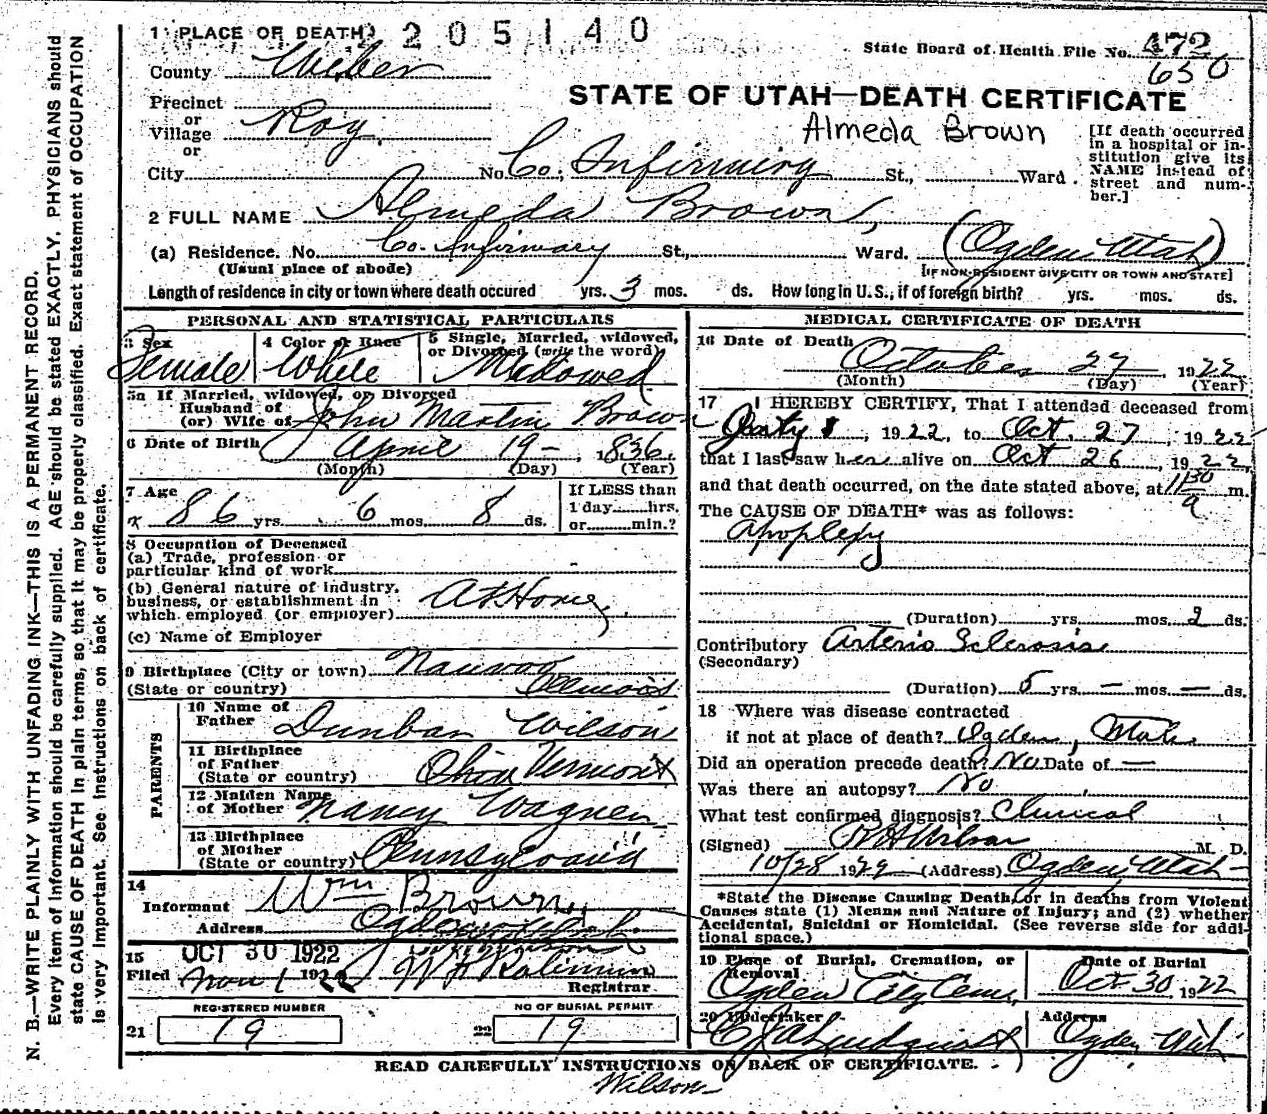 N. B.—WRITE PLAINLY WITH UNFADING INK—THIS IS A PERMANENT RECORD.
Every item of information should be carefully supplied. AGE should be stated EXACTLY. PHYSICIANS should
state CAUSE OF DEATH in plain terms, so that it may be properly classified. Exact statement of OCCUPATION
is very important. See instructions on back of certificate.
1 PLACE OF DEATH
2 205140
State Board of Health File No. 472
650
County Weber
STATE OF UTAH—DEATH CERTIFICATE
Precinct
or
Village Roy
or
Almeda Brown
[If death occurred
in a hospital or in-
stitution give its
NAME instead of
street and num-
ber.]
City No. Co. Infirmiry St., Ward
2 FULL NAME Almeda Brown,
(a) Residence. No. Co. Infirmary St., Ward. (Ogden Utah)
(Usual place of abode) [IF NON-RESIDENT GIVE CITY OR TOWN AND STATE]
Length of residence in city or town where death occured yrs. 3 mos. ds. How long in U.S., if of foreign birth? yrs. mos. ds.
PERSONAL AND STATISTICAL PARTICULARS
3 Sex Female
4 Color or Race White
5 Single, Married, widowed,
or Divorced (write the word)
Widowed
5a If Married, widowed, or Divorced
Husband of
(or) Wife of John Martin Brown
6 Date of Birth April 19 — , 1836.
(Month) (Day) (Year)
7 Age
86 yrs. 6 mos. 8 ds.
If LESS than
1 day hrs.
or min.?
8 Occupation of Deceased
(a) Trade, profession or
particular kind of work
(b) General nature of industry,
business, or establishment in
which employed (or employer) At Home
(c) Name of Employer
9 Birthplace (City or town) Nauvoo
(State or country) Illinois
PARENTS
10 Name of
Father Dunbar Wilson
11 Birthplace
of Father
(State or country) Ohio Vermont
12 Maiden Name
of Mother Nancy Wagner
13 Birthplace
of Mother
(State or country) Pennsylvania
14
Informant Wm Brown,
Address Ogden Utah
15 OCT 30 1922
Filed Nov 1 1922
Registrar.
REGISTERED NUMBER
21 19
NO OF BURIAL PERMIT
22 19
MEDICAL CERTIFICATE OF DEATH
16 Date of Death
October 27, 1922
(Month) (Day) (Year)
17 I HEREBY CERTIFY, That I attended deceased from
1922, to Oct. 27, 1922
that I last saw her alive on Oct 26, 1922,
and that death occurred, on the date stated above, at 1130 a m.
The CAUSE OF DEATH* was as follows:
Apoplexy
(Duration) yrs. mos. 2 ds.
Contributory Arterio Sclerosis
(Secondary)
(Duration) 5 yrs. — mos. — ds.
18 Where was disease contracted
if not at place of death? Ogden, Utah
Did an operation precede death? No Date of —
Was there an autopsy? No
What test confirmed diagnosis? Clinical
(Signed) M. D.
10/28 1922 (Address) Ogden Utah
*State the Disease Causing Death, or in deaths from Violent
Causes state (1) Means and Nature of Injury; and (2) whether
Accidental, Suicidal or Homicidal. (See reverse side for addi-
tional space.)
19 Place of Burial, Cremation, or
Removal
Ogden City Cem.
Date of Burial
Oct. 30, 1922
20 Undertaker
Address
Ogden Ut
READ CAREFULLY INSTRUCTIONS ON BACK OF CERTIFICATE.
Wilson